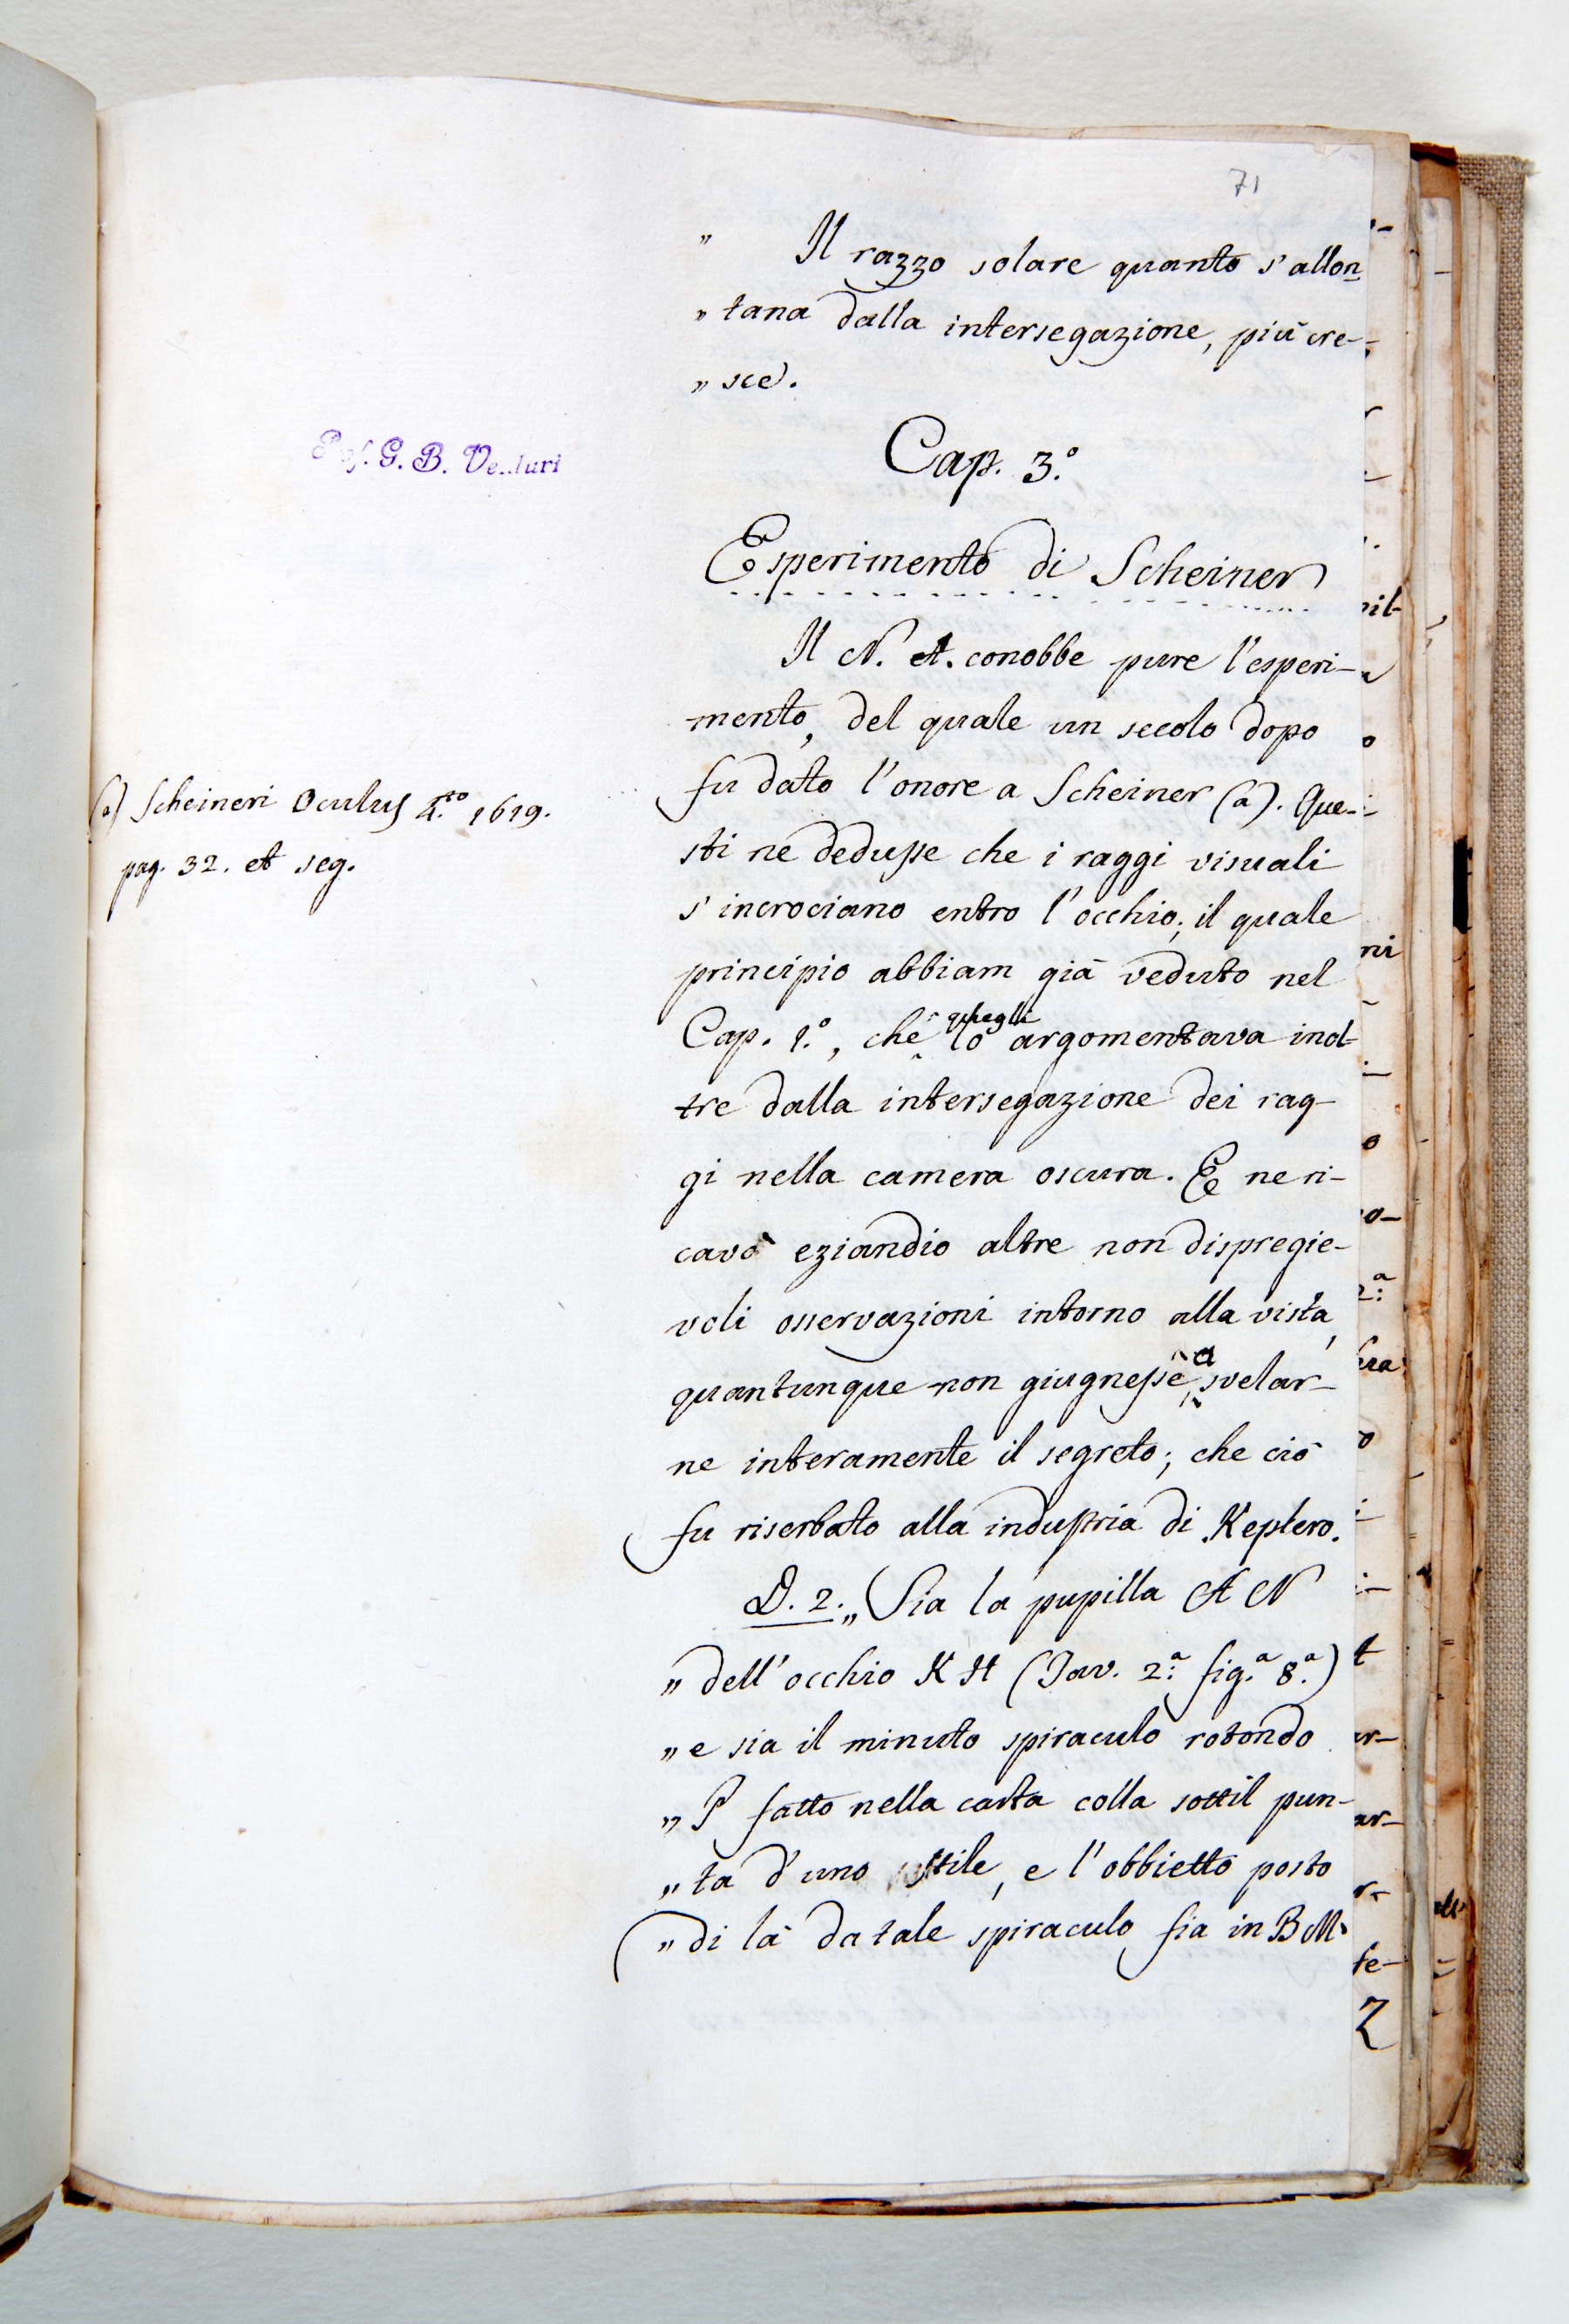 71
„ Il razzo solare quanto s'allon
„ tana dalla intersegazione, più cre-
„ sce.
Prof. G. B. Venturi
Cap. 3.°
Esperimento di Scheiner
Il N. A. conobbe pure l'esperi-
mento, del quale un secolo dopo
fu dato l'onore a Scheiner (a). Que-
(a) Scheineri Oculus 4.to 1619.
pag. 32. et seg.
sti ne dedusse che i raggi visuali
s'incrociano entro l'occhio; il quale
principio abbiam già veduto nel
Cap. 1.°, che quegli lo argomentava inol-
tre dalla intersegazione dei rag-
gi nella camera oscura. E ne ri-
cavò eziandio altre non dispregie-
voli osservazioni intorno alla vista,
quantunque non giugnesse a svelar-
ne interamente il segreto; che ciò
fu riserbato alla industria di Keplero.
D. 2. „ Sia la pupilla A N
„ dell'occhio K H (Tav. 2.ª fig.ª 8.ª)
„ e sia il minuto spiraculo rotondo
„ P fatto nella carta colla sottil pun-
„ ta d'uno stile, e l'obbietto posto
„ di là da tale spiraculo sia in B M.